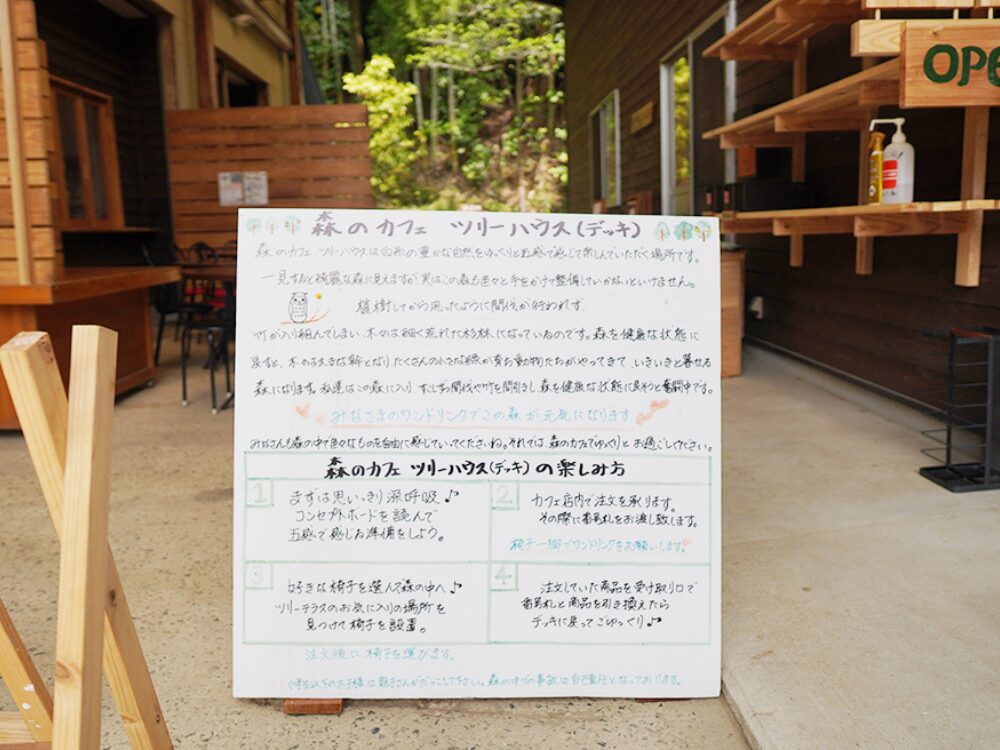 OPE
森のカフェ ツリーハウス(デッキ)
森のカフェ ツリーハウスは白糸の豊かな自然をゆっくりと五感で感じて楽しんでいただく場所です。
一見すると綺麗な森に見えますが実はこの森も色々と手をかけて整備していかないといけません。
植樹してから思ったように間伐が行われず、
竹が入り組んでしまい、木々は細く荒れた杉林になっているのです。森を健康な状態に
戻すと、木々は大きな幹となり、たくさんの小さな緑が育ち動物たちがやってきて、いきいきと暮せる
森になります。私達はこの森に入り、少しずつ間伐や竹を間引きし、森を健康な状態に戻そうと奮闘中です。
みなさまのワンドリンクでこの森が元気になります
みなさんも森の中で色々なものを自由に感じていってくださいね。それでは森のカフェでゆっくりとお過ごしください。
森のカフェ ツリーハウス(デッキ)の楽しみ方
1
まずは思いっきり深呼吸♪
コンセプトボードを読んで
五感で感じる準備をしよう。
2
カフェ店内で注文を承ります。
その際に番号札をお渡し致します。
椅子一脚でワンドリンクをお願いします。
3
好きな椅子を選んで森の中へ♪
ツリーテラスのお気に入りの場所を
見つけて椅子を設置。
4
注文していた商品を受け取り口で
番号札と商品を引き換えたら
デッキに戻ってごゆっくり♪
注文後に椅子を運びます。
小学生以下のお子様は親子さんがだっこして下さい。森の中での事故は自己責任となっております。